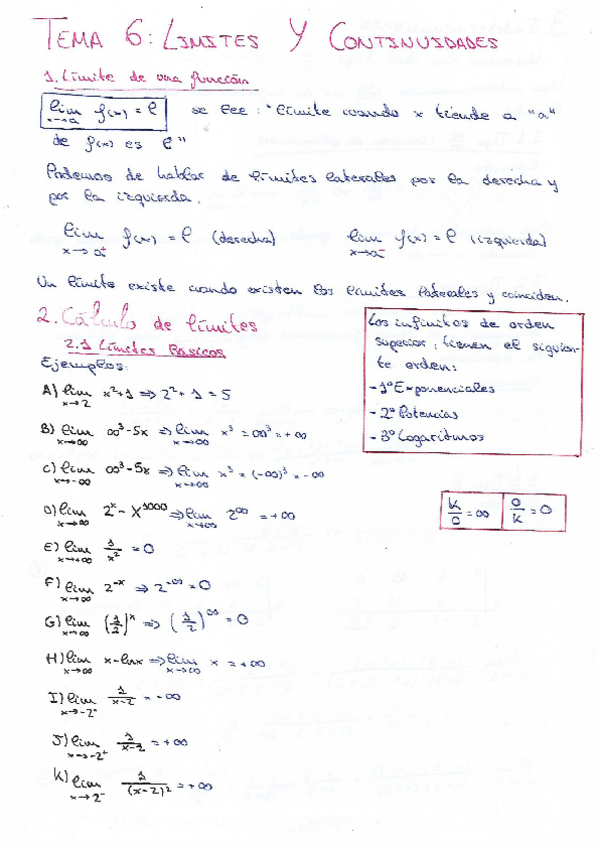 TEMA 6: LIMITES Y CONTINUIDADES
1. Límite de una función
lim x→a f(x) = l se lee: "límite cuando x tiende a "a"
de f(x) es l"
Podemos de hablar de límites laterales por la derecha y
por la izquierda.
lim x→a⁺ f(x) = l (derecha) lim x→a⁻ f(x) = l (izquierda)
Un límite existe cuando existen los límites laterales y coinciden.
2. Cálculo de límites
2.1 Límites Básicos
Ejemplos:
Los infinitos de orden
superior: tienen el siguien-
te orden:
- 1º Exponenciales
- 2º Potencias
- 3º Logaritmos
A) lim x→2 x²+1 ⇒ 2²+1 = 5
B) lim x→∞ ∞³-5x ⇒ lim x→∞ x³ = ∞³ = +∞
C) lim x→-∞ ∞³-5x ⇒ lim x→-∞ x³ = (-∞)³ = -∞
D) lim x→∞ 2ˣ - x¹⁰⁰⁰ ⇒ lim x→∞ 2^∞ = +∞
k/0 = ∞ 0/k = 0
E) lim x→+∞ 1/x² = 0
F) lim x→∞ 2⁻ˣ ⇒ 2^-∞ = 0
G) lim x→∞ (1/2)ˣ ⇒ (1/2)^∞ = 0
H) lim x→∞ x-lnx ⇒ lim x→∞ x = +∞
I) lim x→-2⁻ 1/x-2 = -∞
J) lim x→-2⁺ 1/x-2 = +∞
K) lim x→2⁻ 1/(x-2)² = +∞